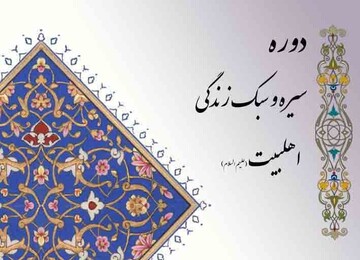 دوره
سیره و سبک زندگی
اهلبیت (علیهم السلام)